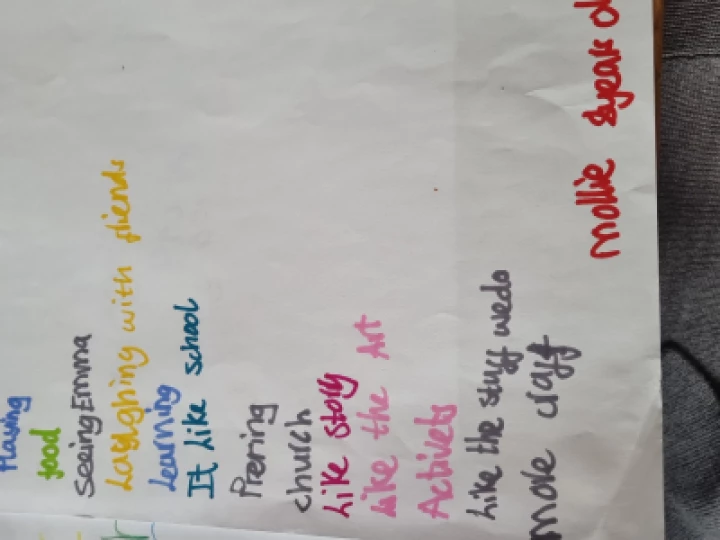 Playing
food
Seeing Emma
Laughing with friends
Learning
It Like school
Prering
church
Like story
Like the Art
Activets
Like the stuff we do
more craft
mollie 8 years